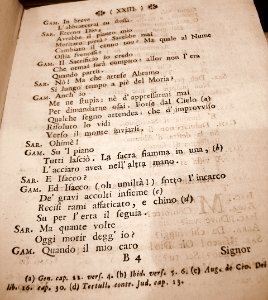 ( XXIII. )
GAM. In breve
L'abbraccerai
SAR. Eccoti Dio,
Avrebbe il pianto mio
Meritato pietà? Sarebbe mai
Cambiato il cenno suo? Ma quale al Nume
Ostia svenossi?
GAM. Il Sacrifizio io credo
Che ormai sarà compito: allor non l'era
Quando partii.
SAR. Nò! Ma che attese Abramo
Sì lungo tempo a piè del Moria?
GAM. Anch' io
Me ne stupia: nè d'appressarmi mai
Per dimandarne osai. Forse dal Cielo (a)
Qualche segno attendea: che d'improvviso
Risoluto lo vidi
Verso il monte inviarsi.
SAR. Ohimè!
GAM. Su 'l piano
Tutti lasciò. La sacra fiamma in una, (b)
L'acciaro avea nell'altra mano.
SAR. E Isacco?
GAM. Ed Isacco (oh umiltà!) sotto l'incarco
De' gravi accolti insieme (c)
Recisi rami affaticato, e chino (d)
Su per l'erta il seguia.
SAR. Ma quante volte
Oggi morir degg' io?
GAM. Quando il mio caro
B 4 Signor
(a) Gen. cap. 22. vers. 4. (b) Ibid. vers. 5. 6. (c) Aug. de Civ. Dei
lib. 16. cap. 30. (d) Tertull. contr. Jud. cap. 13.